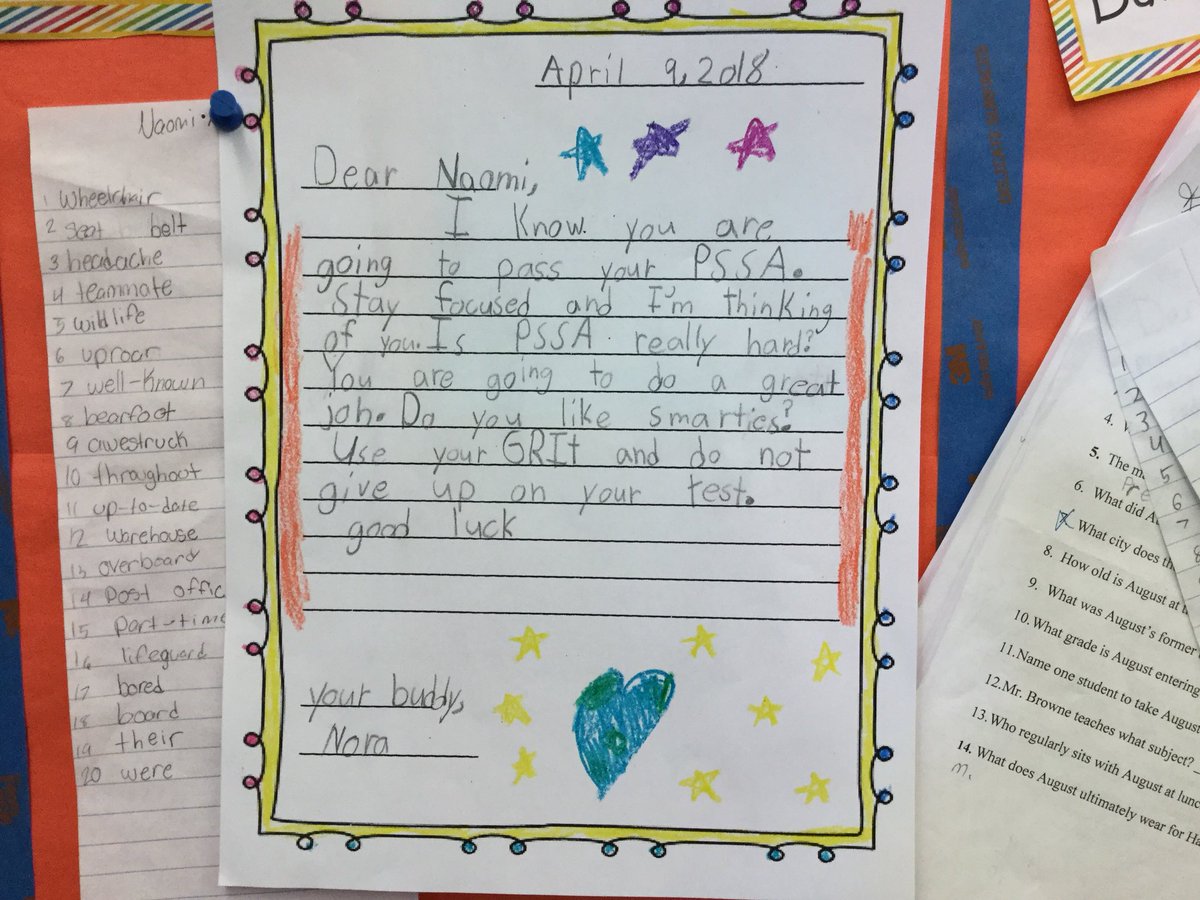 Naomi
1 Wheelchair
2 seat belt
3 headache
4 teammate
5 wildlife
6 uproar
7 well-known
8 bearfoot
9 awestruck
10 throughout
11 up-to-date
12 warehouse
13 overboard
14 Post offic
15 part-time
16 lifeguard
17 bored
18 board
19 their
20 were
April 9, 2018
Dear Naomi,
I Know you are
going to pass your PSSA.
Stay focused and I'm thinking
of you. Is PSSA really hard?
You are going to do a great
joh. Do you like smarties?
Use your GRIt and do not
give up on your test.
good luck
your buddy,
Nora
3M
1
2
3
4
5
6
7
8
4.
5. The
6. What did
What city does
8. How old is August at
9. What was August's former
10. What grade is August entering
11. Name one student to take August
12. Mr. Browne teaches what subject?
13. Who regularly sits with August at
14. What does August ultimately wear for